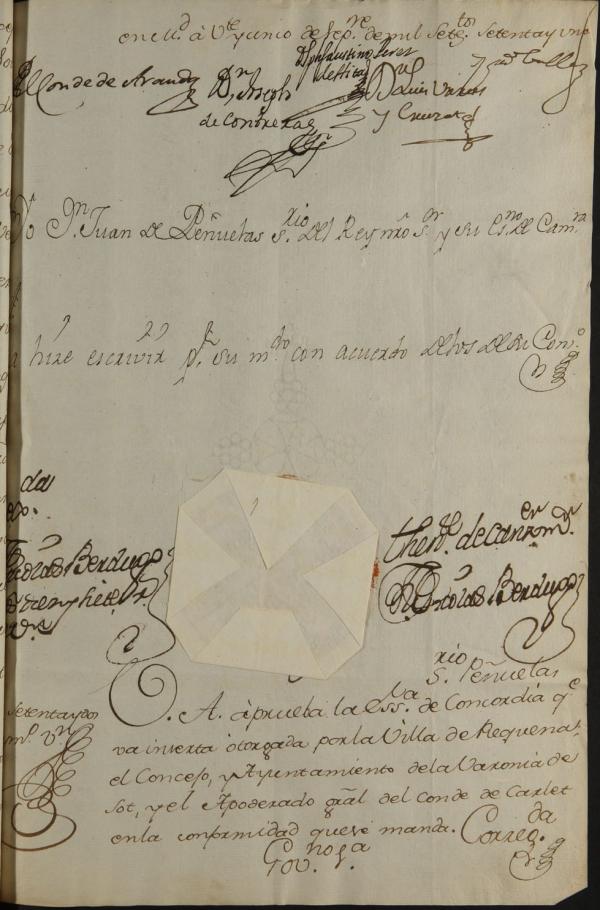 en Md. à Vte y uno de Sepne. de mil Setetos. Setenta y uno
El Conde de Aranda Dn. Joseph de Contreras
Dn. Phaustino Perez de Hita
Dn. Luis Vrries y Cruzat
Yo Dn. Juan de Peñuelas srio. del Rey nro Sr. y su Esno. de Camra.
hize escrivir pr. su mdo. con acuerdo de los de su Conso.
da
do.
Nicolas Berdugo
thente. de Canzer mor.
Nicolas Berdugo
srio. Peñuelas
Setenta y dos
ms. Vn
V. A. àprueba la Essra. de Concordia qe.
va inserta otorgada por la Villa de Requena,
el Concejo, y Ayuntamiento de la Varonia de
Sot, y el Apoderado gral del Conde de Carlet
en la conformidad que se manda. Corregda.
Gov.